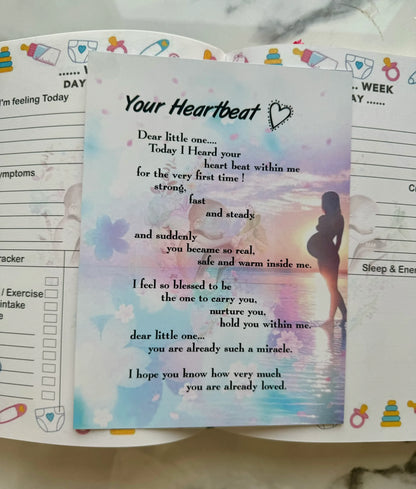 ...... WEEK
DAY ......
I'm feeling Today
Symptoms
/ Exercise
intake
Your Heartbeat
Dear little one....
Today I Heard your
heart beat within me
for the very first time !
strong,
fast
and steady.
and suddenly
you became so real,
safe and warm inside me.
I feel so blessed to be
the one to carry you,
nurture you,
hold you within me.
dear little one...
you are already such a miracle.
I hope you know how very much
you are already loved.
WEEK
......
Sleep & Energy